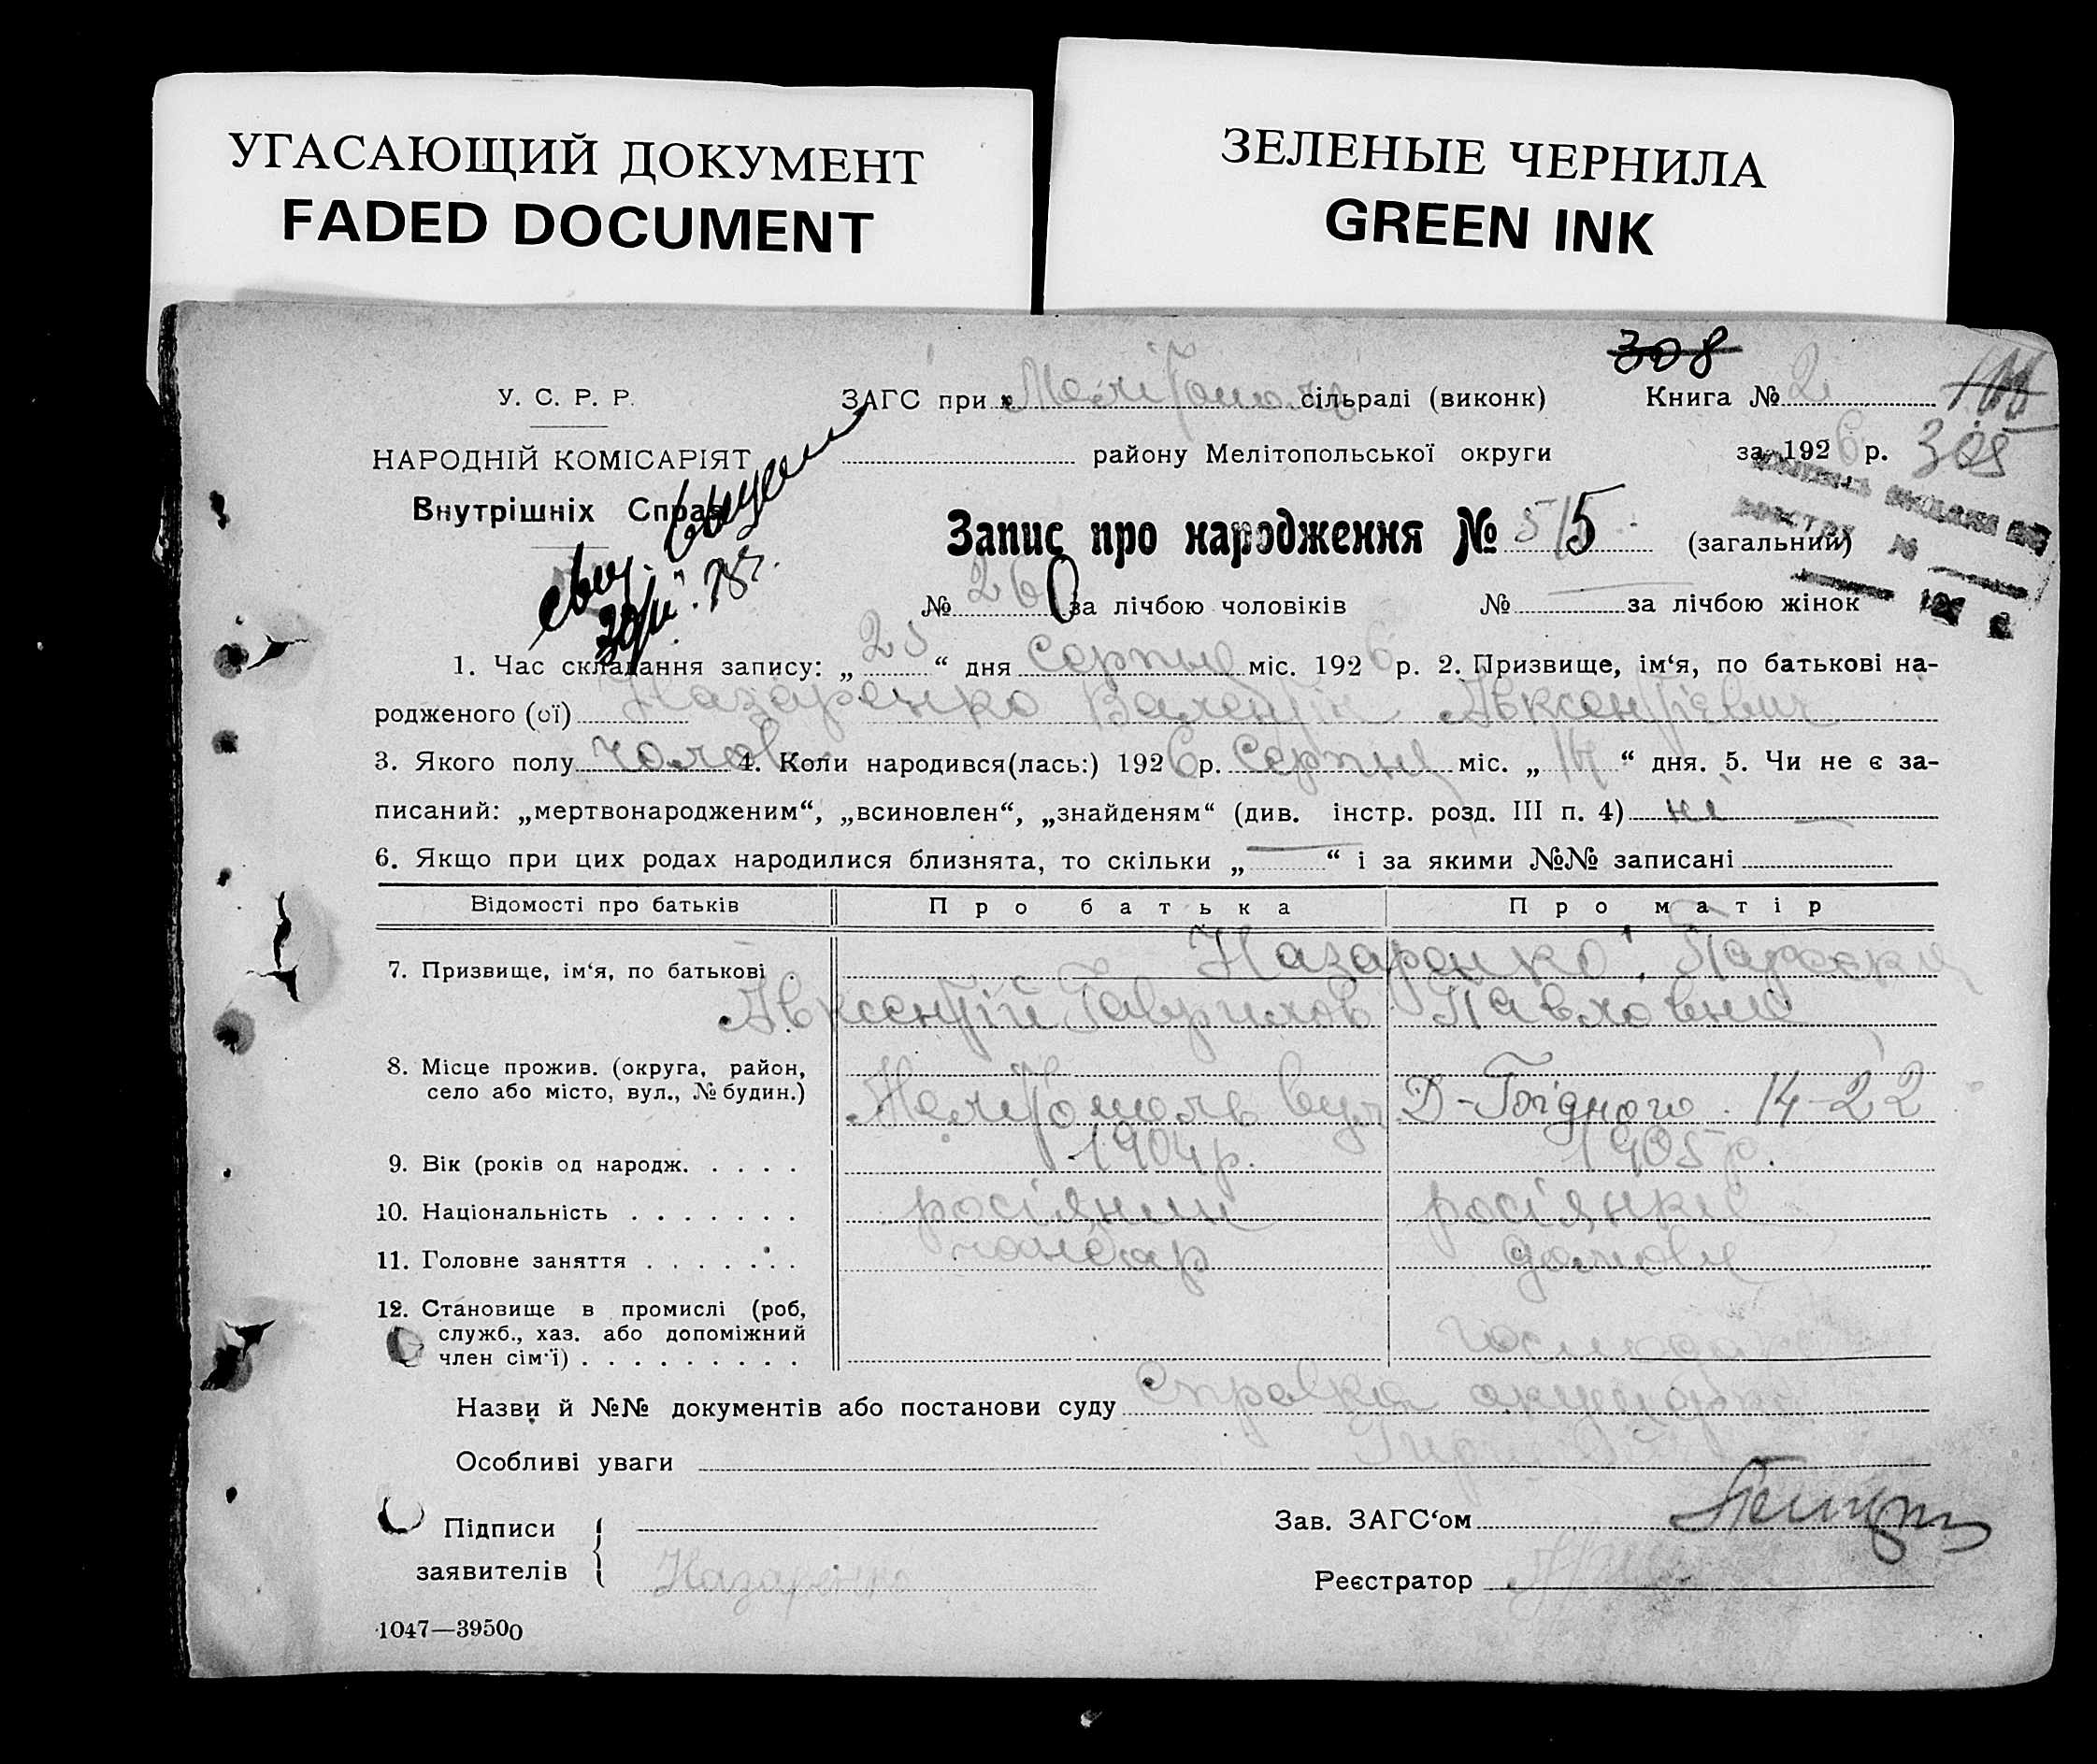 УГАСАЮЩИЙ ДОКУМЕНТ
FADED DOCUMENT
ЗЕЛЕНЫЕ ЧЕРНИЛА
GREEN INK
308
У. С. Р. Р.
ЗАГС при Мелітополь сільраді (виконк)
Книга № 2
НАРОДНІЙ КОМІСАРІЯТ
району Мелітопольської округи
за 1926 р. 305
Внутрішніх Справ
Запис про народження № 515 (загальний)
№ 260 за лічбою чоловіків № за лічбою жінок
1. Час складання запису: „ “ дня Серпня міс. 1926 р. 2. Призвище, ім‘я, по батькові на-
родженого (ої) Назаренко Валентін Авксентієвич
3. Якого полу чолов 4. Коли народився(лась:) 1926 р. Серпня міс. „ 14 “ дня. 5. Чи не є за-
писаний: „мертвонародженим“, „всиновлен“, „знайденям“ (див. інстр. розд. III п. 4) ні
6. Якщо при цих родах народилися близнята, то скільки „ “ і за якими №№ записані
Відомості про батьків Про батька Про матір
7. Призвище, ім‘я, по батькові Назаренко, Параски
Авксентій Гаврилов Павловна
8. Місце прожив. (округа, район,
село або місто, вул., № будин.) Мелітополь вул Д-Бідного 14-22
9. Вік (років од народж. 1904 р. 1905 р.
10. Національність росіянин росіянка
11. Головне заняття домови
12. Становище в промислі (роб,
служб., хаз. або допоміжний
член сім‘ї) господарка
Назви й №№ документів або постанови суду Справка акушерки
Особливі уваги
Підписи
Зав. ЗАГС‘ом
заявителів Назаренко
Реєстратор
1047—39500